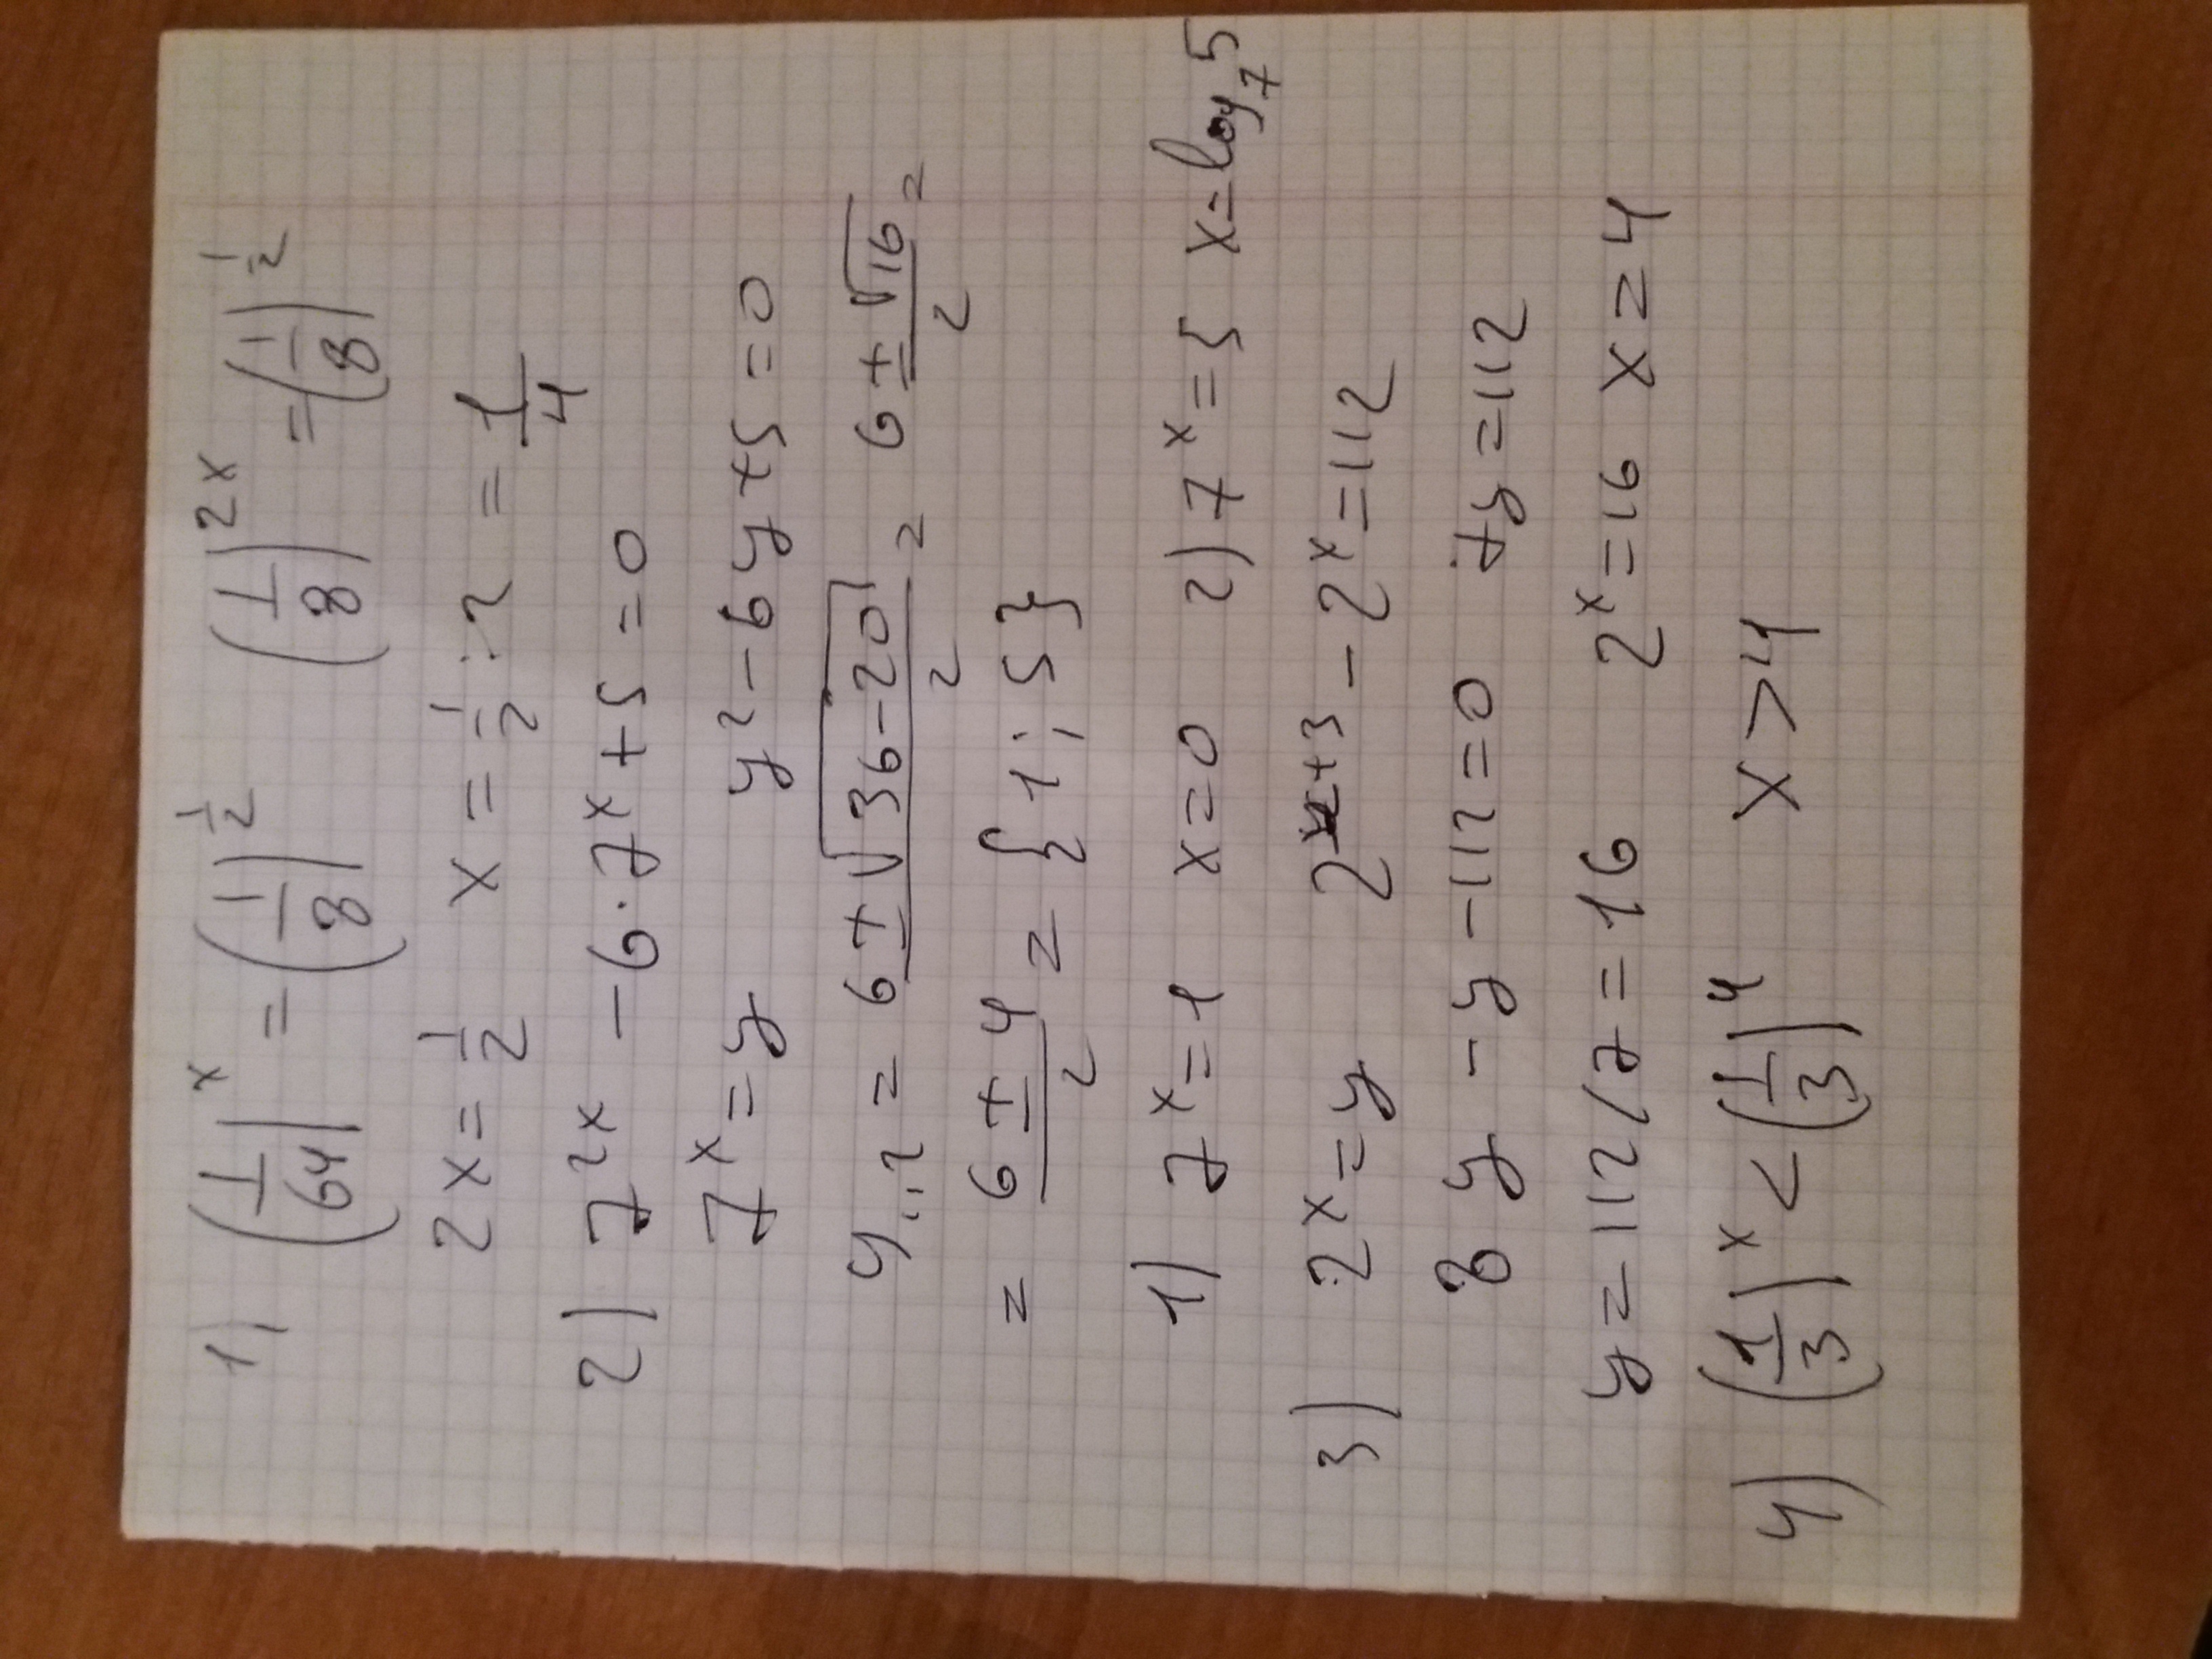 1) (1/64)^x = (1/8)^1/2 (1/8)^2x = (1/8)^1/2
2x = 1/2 x = 1/2 : 2 = 1/4
2) 7^2x - 6 · 7^x + 5 = 0
7^x = y y² - 6y + 5 = 0
y₁,₂ = (6 ± √(36-20))/2 = (6 ± √16)/2 =
= (6 ± 4)/2 = {1; 5}
1) 7^x = 1 x = 0 2) 7^x = 5 x = log₇5
3) 2^x = y 2^x+3 - 2^x = 112
8y - y - 112 = 0 7y = 112
y = 112/7 = 16 2^x = 16 x = 4
4) (1/3)^x < (1/3)^4 x > 4